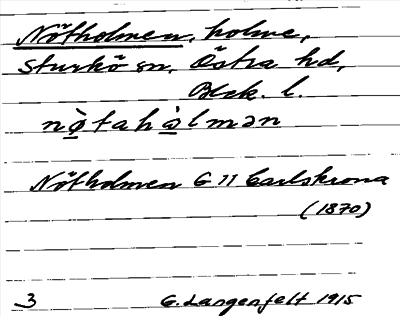 Nötholmen, holme,
Sturkö sn, Östra hd,
Blek. l.
nø̀tahòlmən
Nötholmen G 11 Carlskrona
(1870)
3 G. Langenfelt 1915